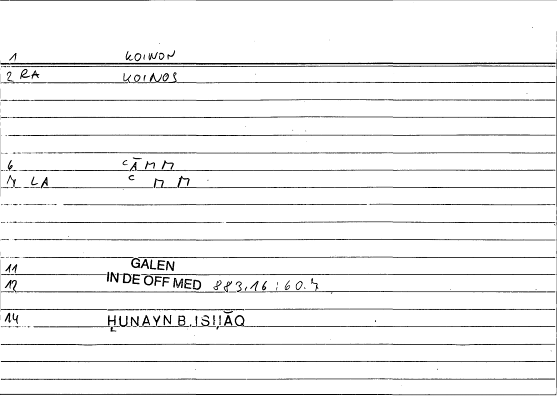 1 KOINON
2 RA KOINOS
6 ʿĀMM
LA ʿMM
11 GALEN
12 IN DE OFF MED 883,16 : 60.7
14 ḤUNAYN B. ISḤĀQ